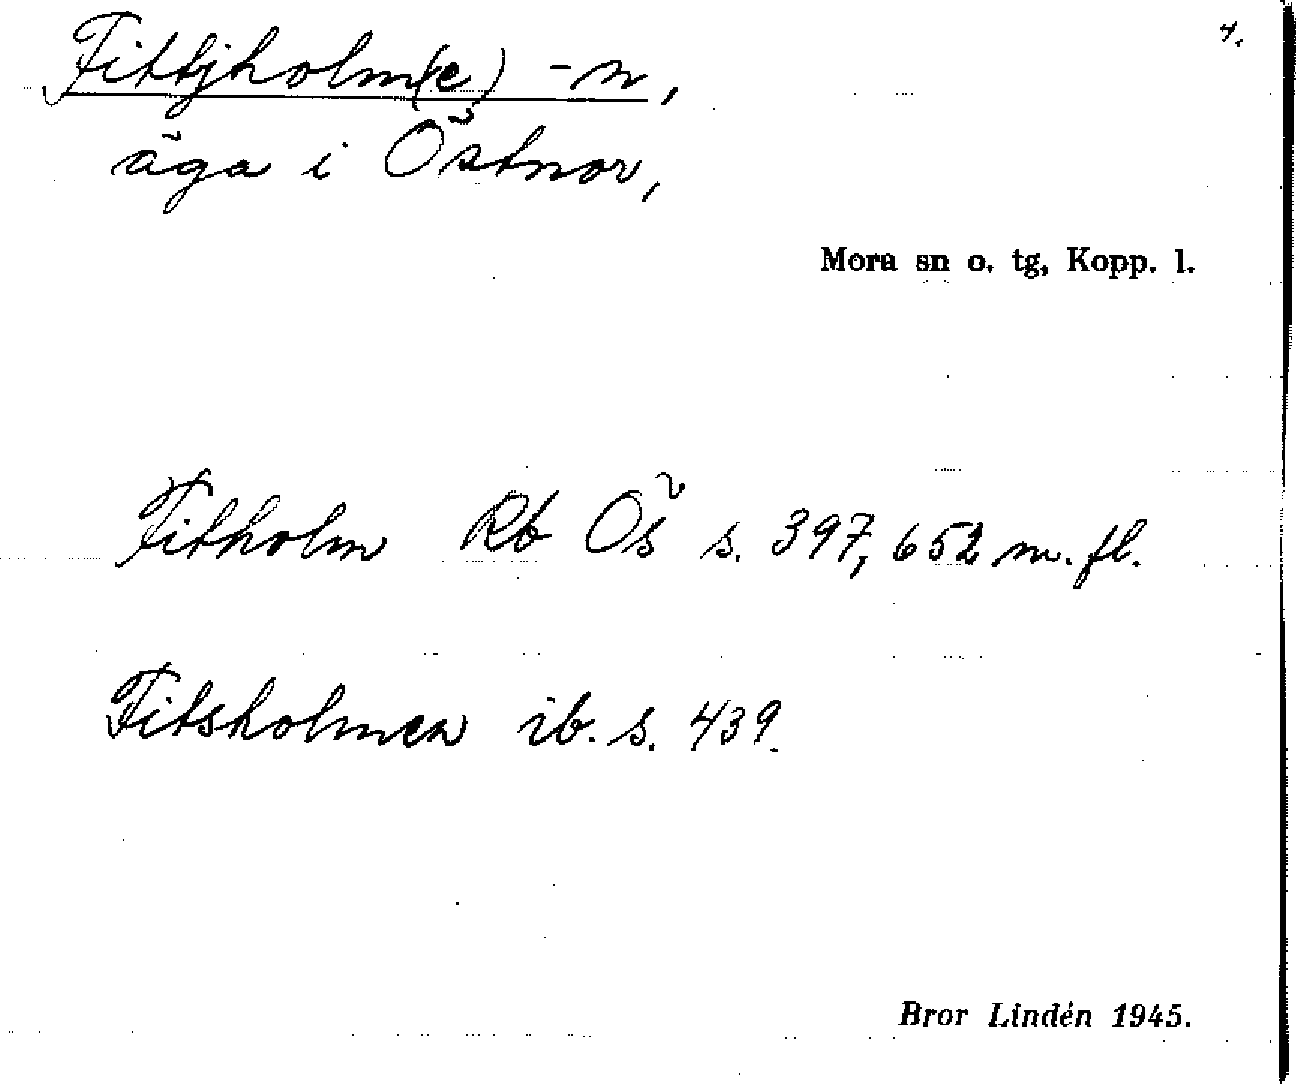 4.
Fittjholm(e) -n,
äga i Östnor,
Mora sn o. tg, Kopp. l.
Fitholm Rb Ös s. 397, 652 m. fl.
Fitsholmen ib. s. 439.
Bror Lindén 1945.